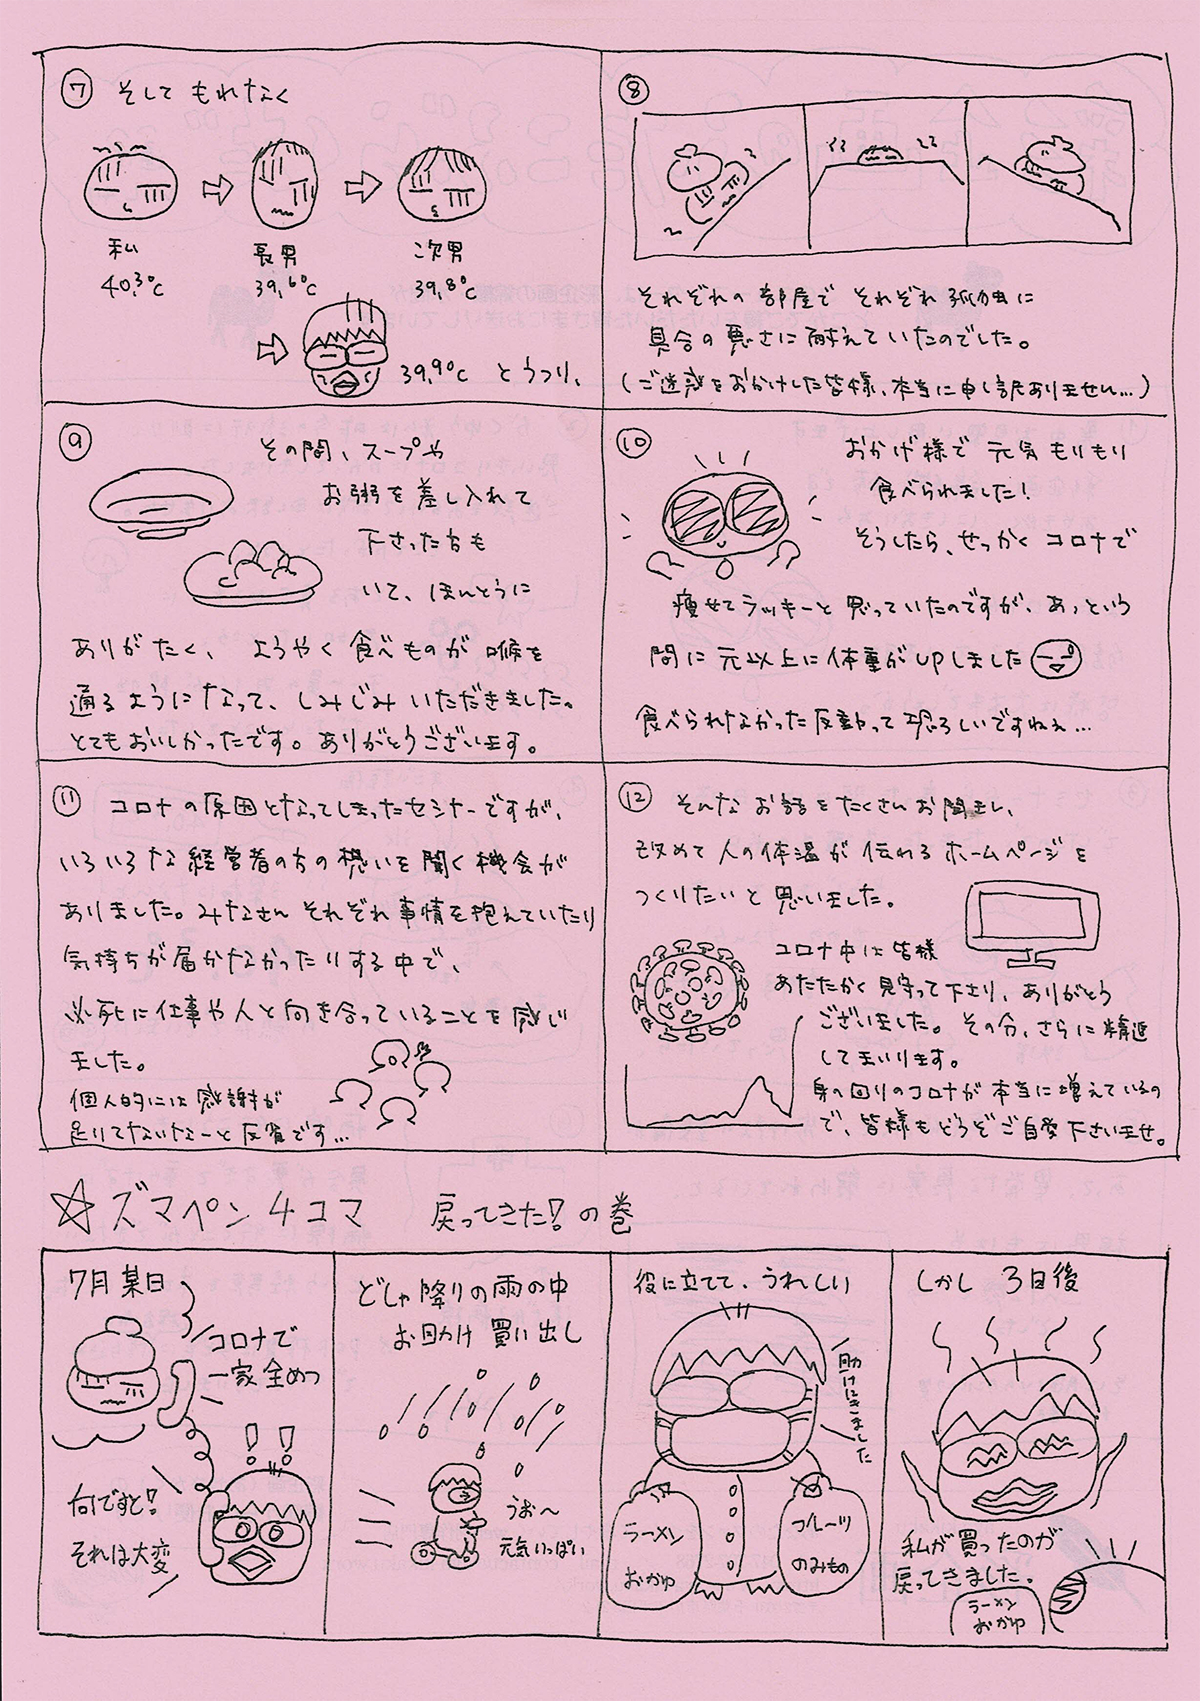 ⑦ そして もれなく
私 長男 次男
40,3℃ 39,6℃ 39,8℃
39,9℃ とうつり、
⑧
それぞれの部屋で それぞれ孤独に
具合の悪さに耐えていたのでした。
(ご迷惑をおかけした皆様、本当に申し訳ありません…)
⑨ その間、スープや
お粥を差し入れて
下さった方も
いて、ほんとうに
ありがたく、ようやく食べものが喉を
通るようになって、しみじみいただきました。
とてもおいしかったです。ありがとうございます。
⑩ おかげ様で 元気もりもり
食べられました!
そうしたら、せっかく コロナで
痩せてラッキーと思っていたのですが、あっという
間に元以上に体重がUPしました
食べられなかった反動って恐ろしいですねぇ…
⑪ コロナの原因となってしまったセミナーですが、
いろいろな経営者の方の想いを聞く機会が
ありました。みなさん それぞれ事情を抱えていたり
気持ちが届かなかったりする中で、
必死に仕事や人と向き合っていることを感じ
ました。
個人的には感謝が
足りてないなーと反省です…
⑫ そんなお話をたくさんお聞きし、
改めて人の体温が伝わるホームページを
つくりたいと思いました。
コロナ中は皆様
あたたかく見守って下さり、ありがとう
ございました。その分、さらに精進
してまいります。
身の回りのコロナが本当に増えているの
で、皆様もどうぞご自愛下さいませ。
☆ズマペン4コマ 戻ってきた!の巻
7月某日
コロナで
一家全めつ
!!
何ですと!
それは大変
どしゃ降りの雨の中
お助け買い出し
うお〜
元気いっぱい
役に立てて、うれしい
助けにきました
ラーメン
おかゆ
フルーツ
のみもの
しかし 3日後
私が買ったのが
戻ってきました。
ラーメン
おかゆ